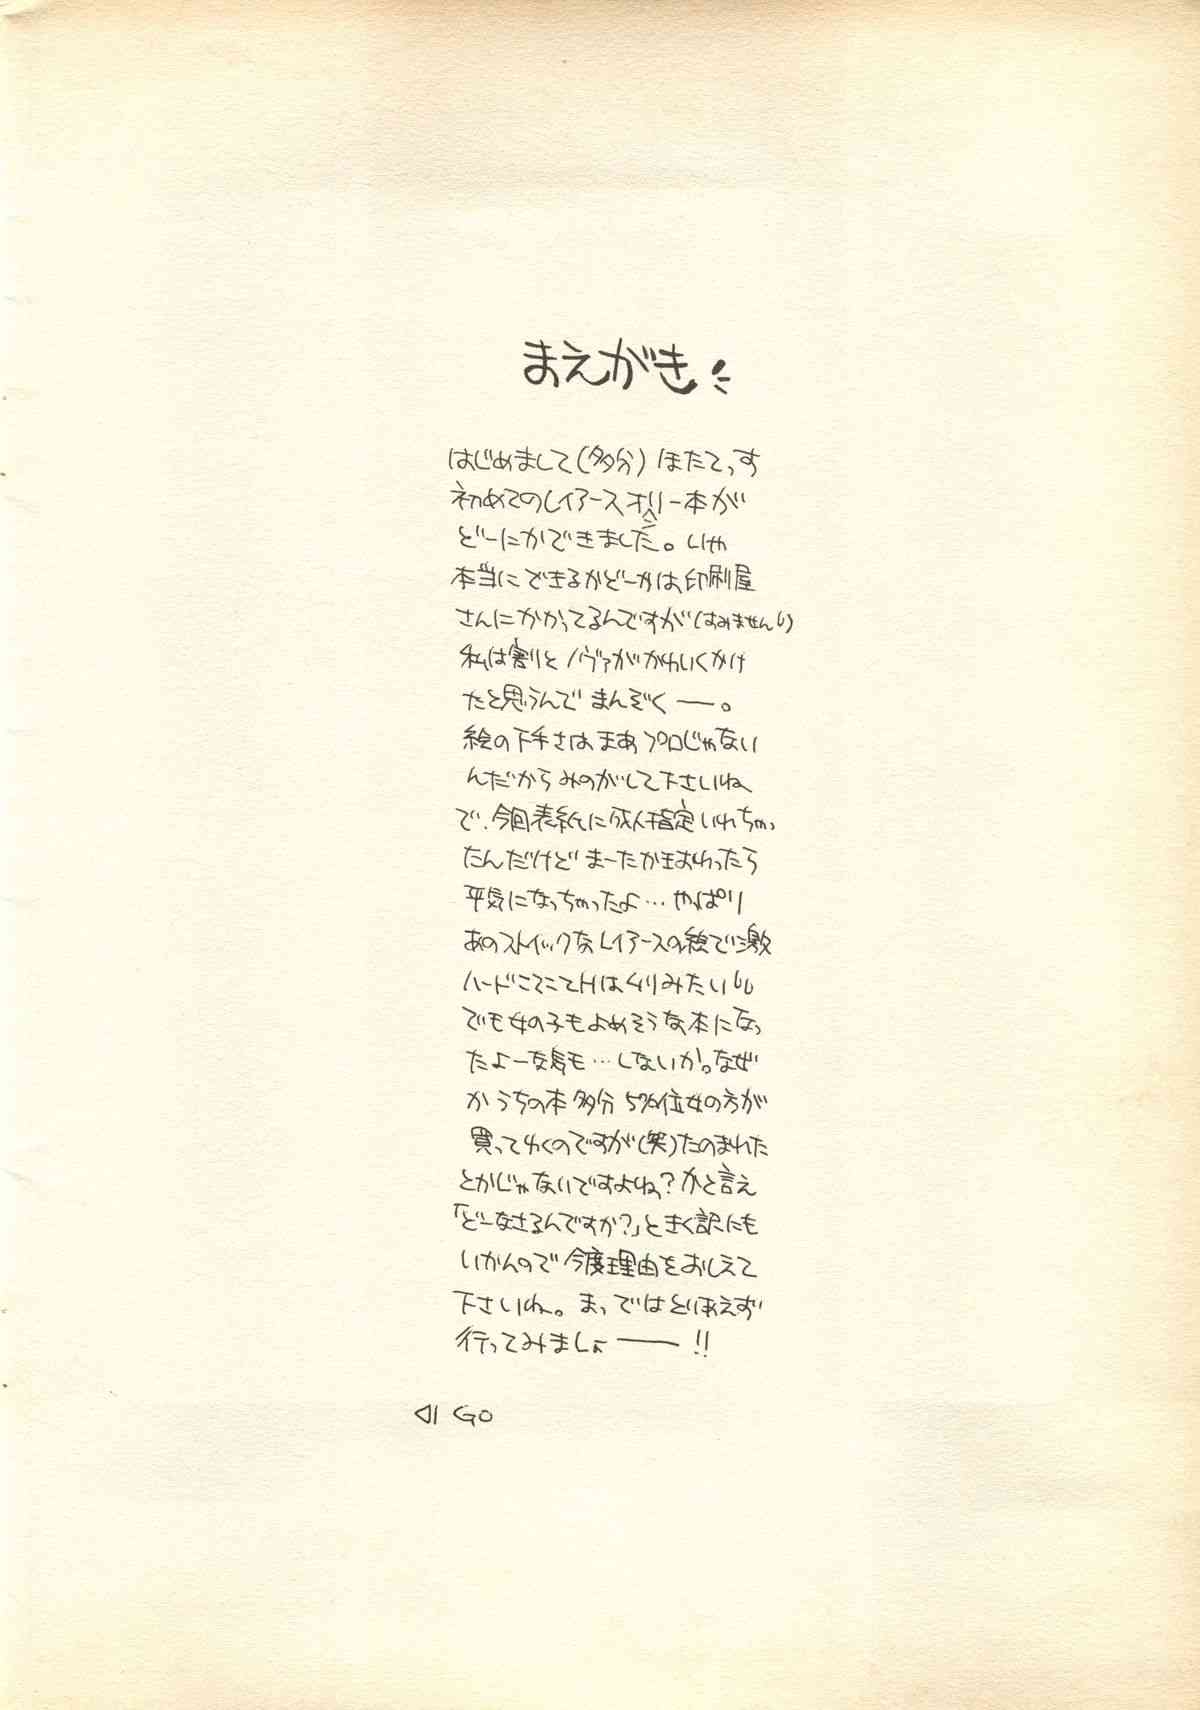 まえがき
はじめまして(多分)ほたてっす
初めてのレイアースオンリー本が
どーにかできました。いや
本当にできるかどーかは、印刷屋
さんにかかってるんですが(すみません)
私は割とノヴァがかわいくかけ
たと思うんでまんぞくー。
絵の下手さは、まあプロじゃない
んだからみのがして下さいね
で、今回表紙に成人指定いれちゃっ
たんだけど まーたかまおわったら
平気になっちゃったよ…やっぱり
あのストイックなレイアースの絵で激
ハードこてこてHはムリみたい
でも女の子もよめそうな本になっ
たよーな気も…しないか。なぜ
かうちの本多分5%位女の方が
買ってゆくのですが(笑)たのまれた
とかじゃないですよね?かと言え
「どーなさるんですか?」ときく訳にも
いかんので今度理由をおしえて
下さいね。まっではとりあえず
行ってみましょー!!
◁| GO